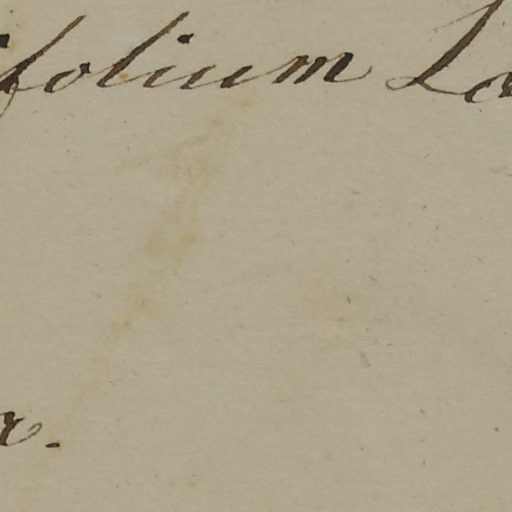 ifolium La
r.